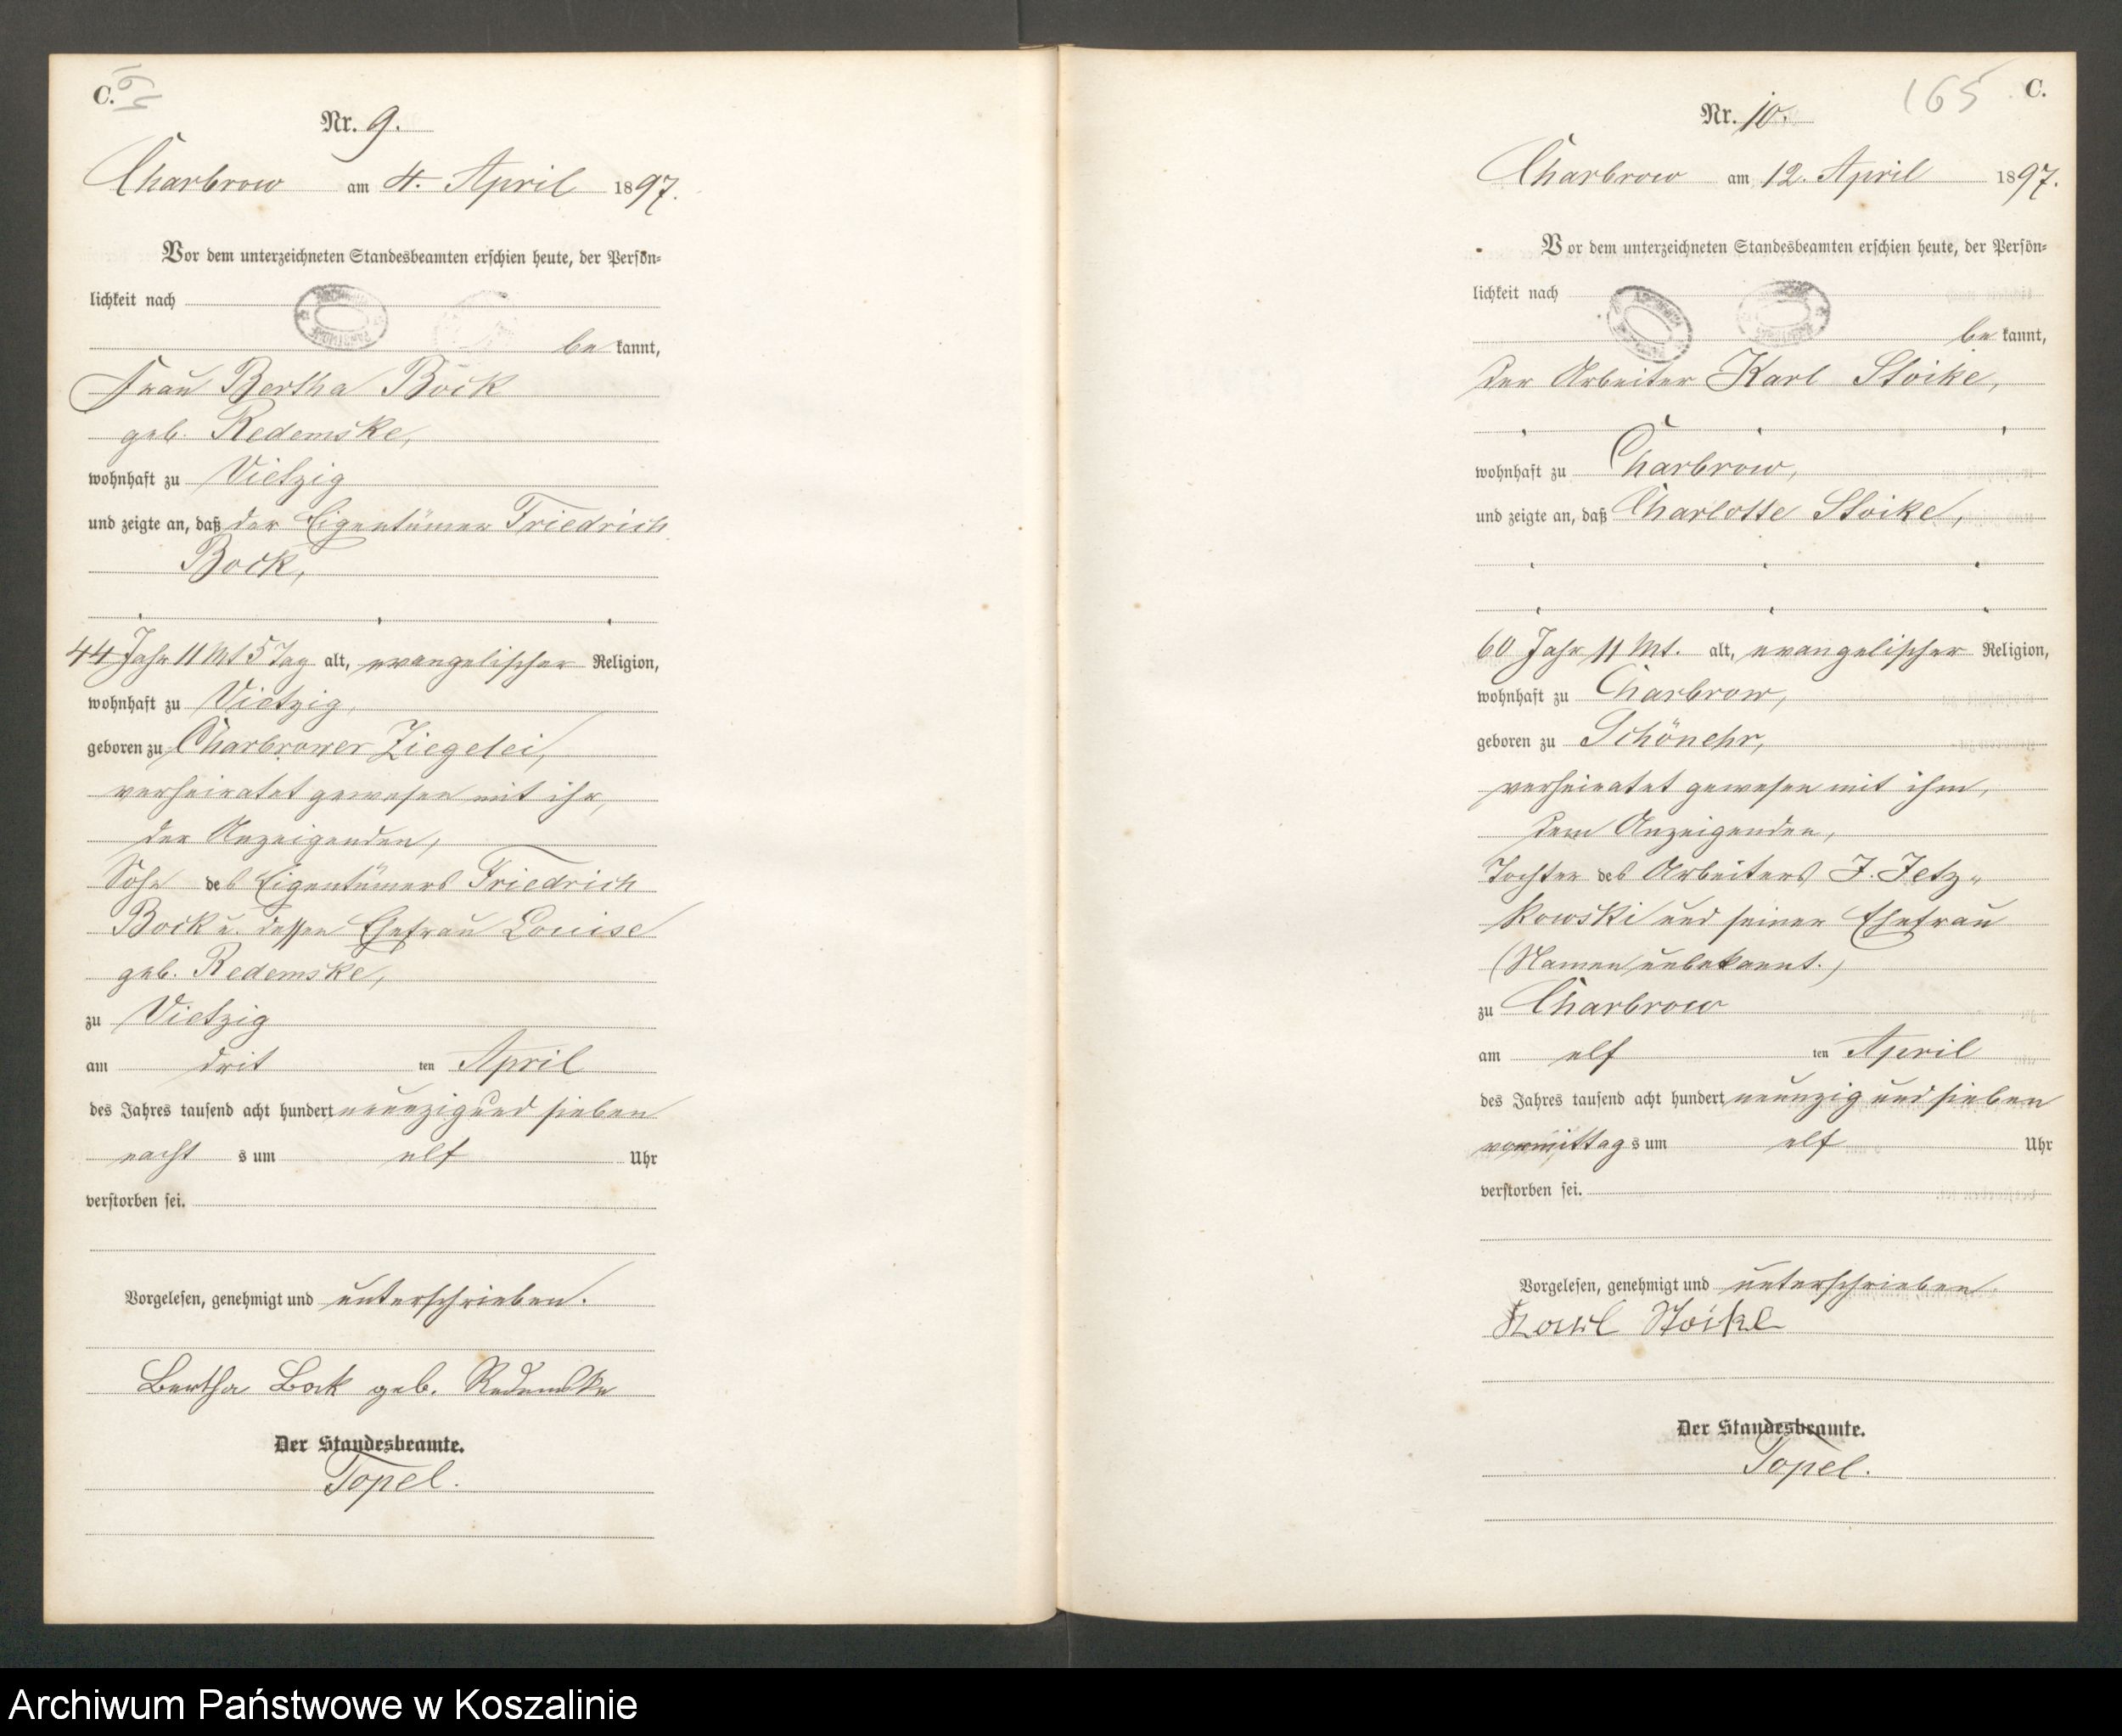 C.
Nr. 9.
Charbrow am 4. April 1897.
Vor dem unterzeichneten Standesbeamten erschien heute, der Persön-
lichkeit nach
be kannt,
Frau Bertha Bock
geb. Redemske,
wohnhaft zu Vietzig
und zeigte an, daß der Eigentümer Friedrich
Bock,
44 Jahr 11 Mt 5 Tag alt, evangelischer Religion,
wohnhaft zu Vietzig,
geboren zu Charbrower Ziegelei,
verheiratet gewesen mit ihr,
der Anzeigenden,
Sohn des Eigentümers Friedrich
Bock u. dessen Ehefrau Louise
geb. Redemske,
zu Vietzig
am drit ten April
des Jahres tausend acht hundert neunzig und sieben
nacht s um elf Uhr
verstorben sei.
Vorgelesen, genehmigt und unterschrieben.
Bertha Bock geb. Redemske
Der Standesbeamte.
Topel.
165 C.
Nr. 10.
Charbrow am 12. April 1897.
Vor dem unterzeichneten Standesbeamten erschien heute, der Persön-
lichkeit nach
be kannt,
der Arbeiter Karl Stoike,
wohnhaft zu Charbrow,
und zeigte an, daß Charlotte Stoike,
60 Jahr 11 Mt. alt, evangelischer Religion,
wohnhaft zu Charbrow,
geboren zu Schönehr,
verheiratet gewesen mit ihm,
dem Anzeigenden,
Tochter des Arbeiters J. Jetz-
kowski und seiner Ehefrau
(Namen unbekannt.)
zu Charbrow
am elf ten April
des Jahres tausend acht hundert neunzig und sieben
vormittag s um elf Uhr
verstorben sei.
Vorgelesen, genehmigt und unterschrieben.
Karl Stoike
Der Standesbeamte.
Topel.
Archiwum Państwowe w Koszalinie